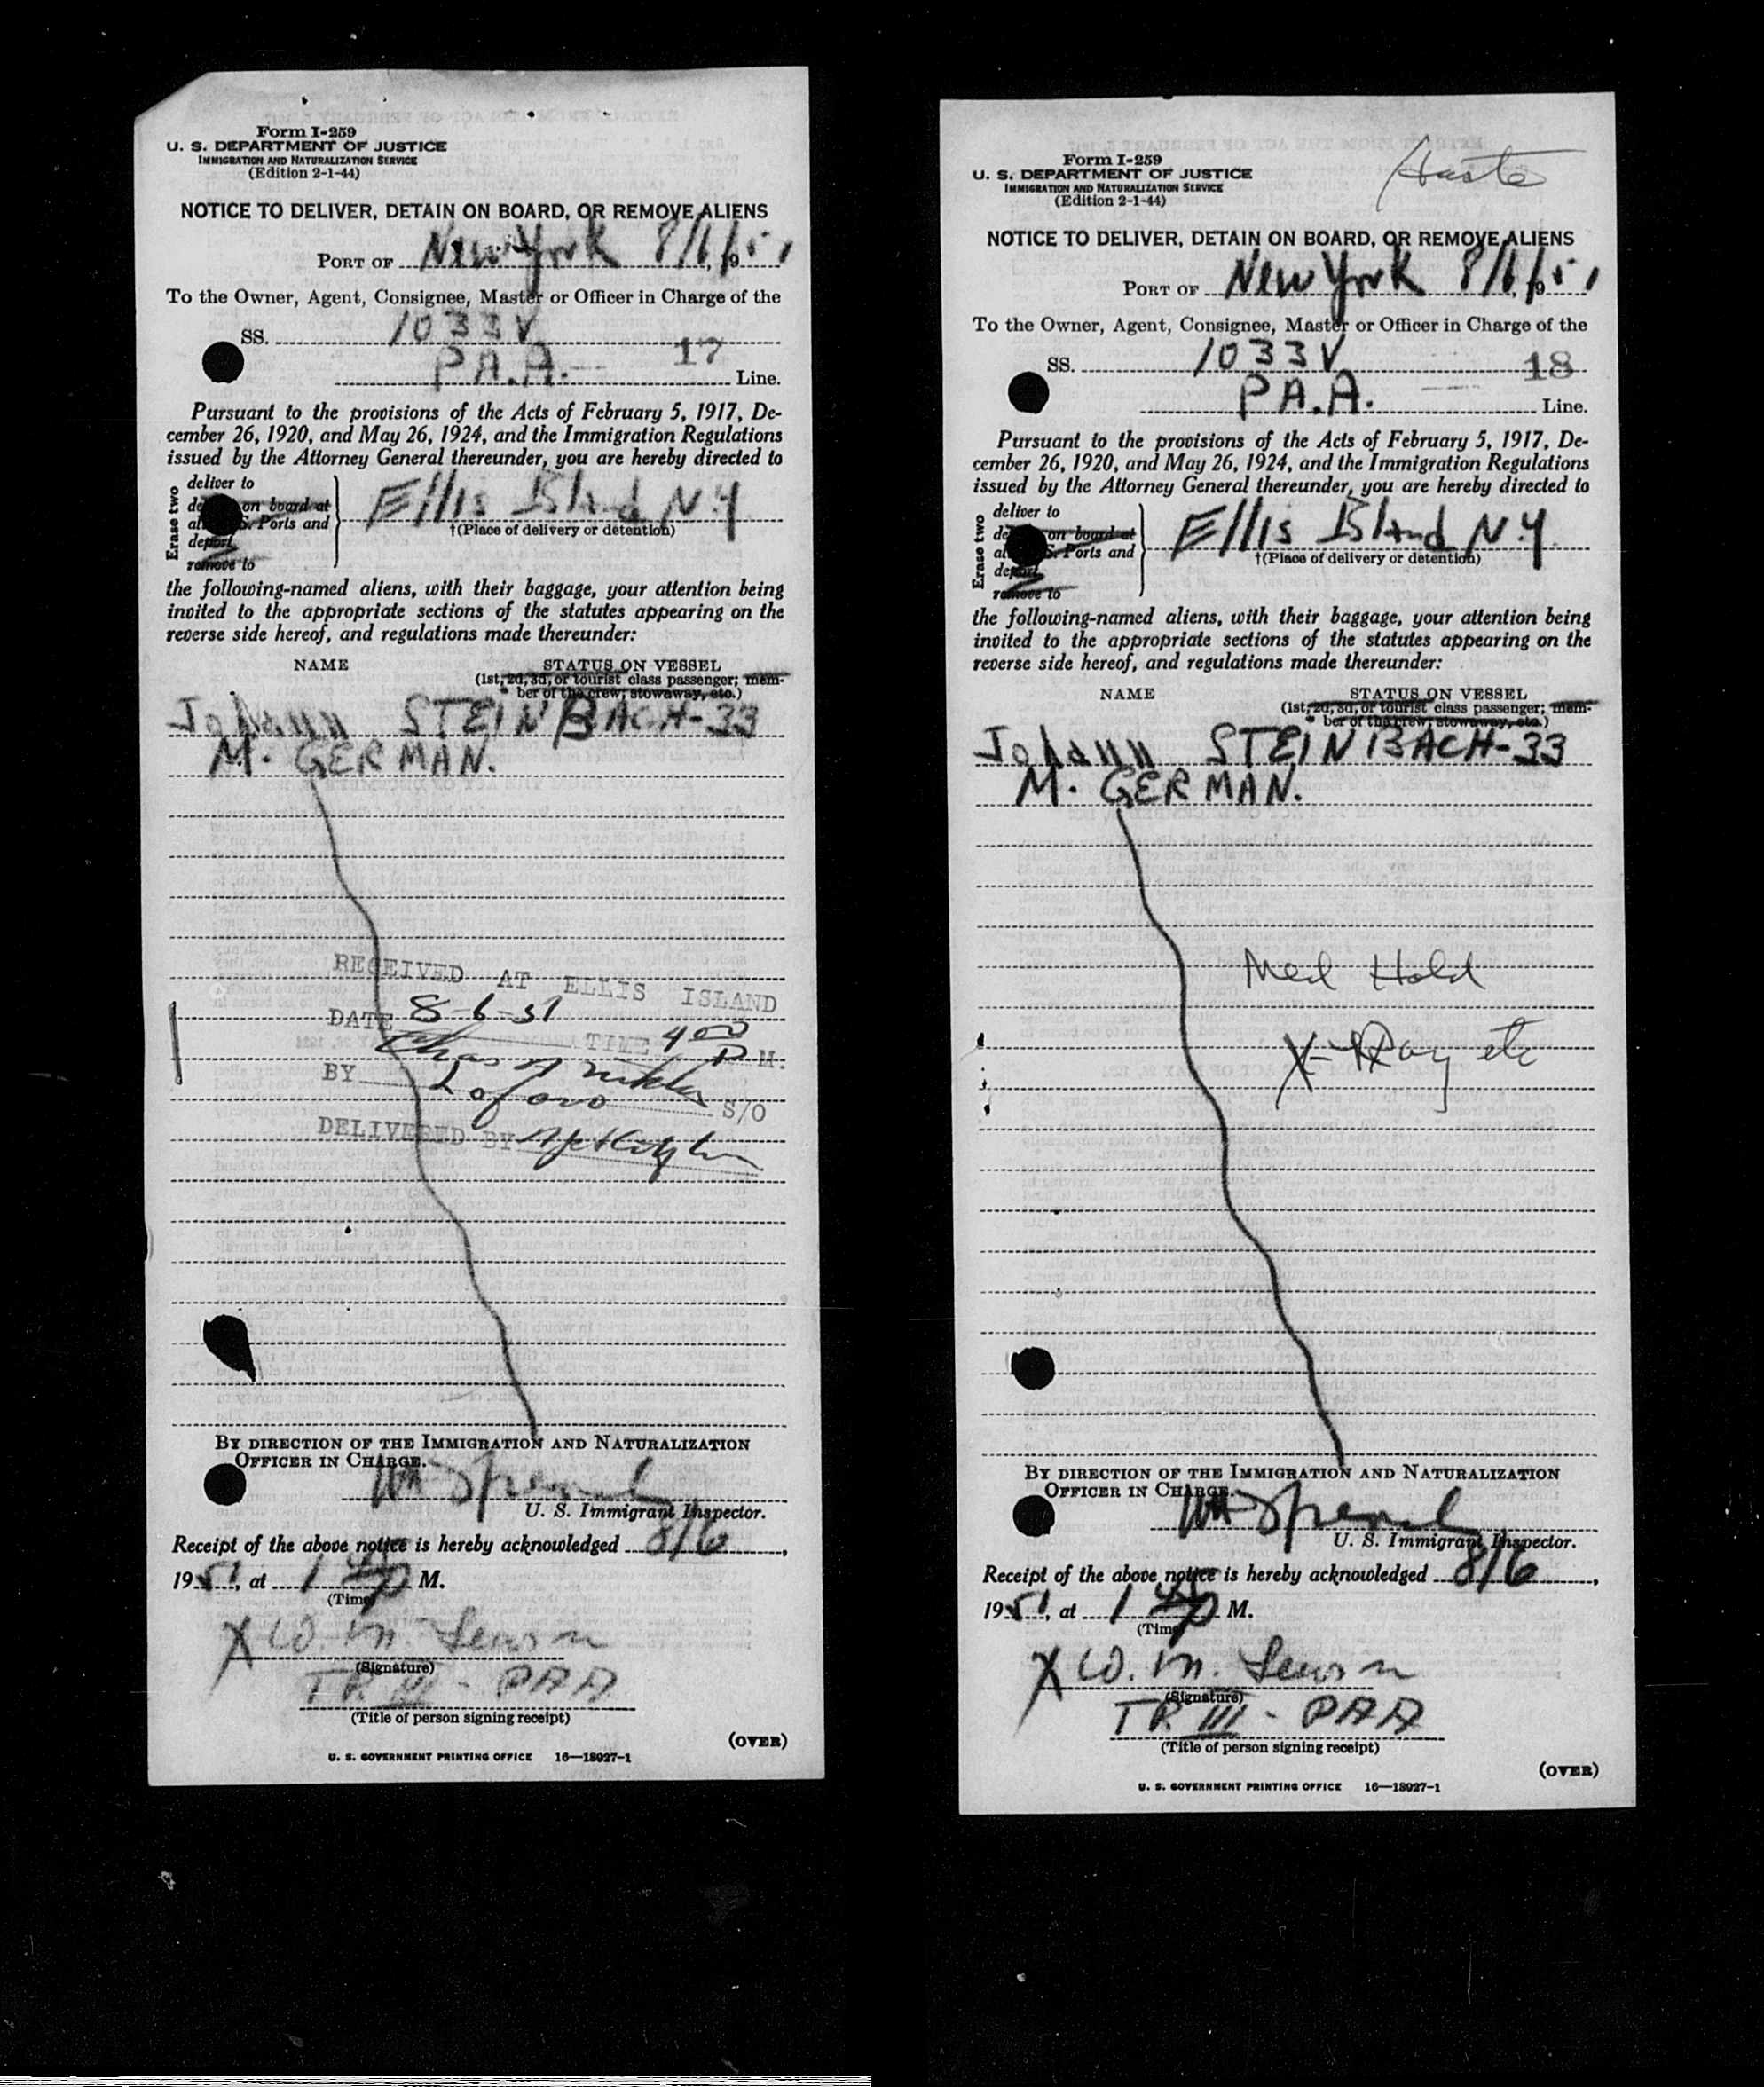 Form I-259
U. S. DEPARTMENT OF JUSTICE
IMMIGRATION AND NATURALIZATION SERVICE
(Edition 2-1-44)
NOTICE TO DELIVER, DETAIN ON BOARD, OR REMOVE ALIENS
PORT OF New York 8/6/51, 19
To the Owner, Agent, Consignee, Master or Officer in Charge of the
SS. 1033V
P.A.A. 17 Line.
Pursuant to the provisions of the Acts of February 5, 1917, De-
cember 26, 1920, and May 26, 1924, and the Immigration Regulations
issued by the Attorney General thereunder, you are hereby directed to
Erase two
deliver to
on board at
Ports and
deport
remove to
Ellis Island N.Y
†(Place of delivery or detention)
the following-named aliens, with their baggage, your attention being
invited to the appropriate sections of the statutes appearing on the
reverse side hereof, and regulations made thereunder:
NAME STATUS ON VESSEL
(1st, 2d, 3d, or tourist class passenger; mem-
ber of the crew, stowaway, etc.)
Johann STEINBACH-33
M. GERMAN.
RECEIVED AT ELLIS ISLAND
DATE 8-6-51 TIME 4 00 P M.
BY S/O
DELIVERED BY
BY DIRECTION OF THE IMMIGRATION AND NATURALIZATION
OFFICER IN CHARGE.
U. S. Immigrant Inspector.
Receipt of the above notice is hereby acknowledged 8/6,
1951, at 1 45 P M.
(Time)
X W. M.
(Signature)
TR III - PAA
(Title of person signing receipt)
(OVER)
U. S. GOVERNMENT PRINTING OFFICE 16—18027-1
Form I-259
U. S. DEPARTMENT OF JUSTICE
IMMIGRATION AND NATURALIZATION SERVICE
(Edition 2-1-44)
NOTICE TO DELIVER, DETAIN ON BOARD, OR REMOVE ALIENS
PORT OF New York 8/6/51, 19
To the Owner, Agent, Consignee, Master or Officer in Charge of the
SS. 1033V 18
P.A.A. Line.
Pursuant to the provisions of the Acts of February 5, 1917, De-
cember 26, 1920, and May 26, 1924, and the Immigration Regulations
issued by the Attorney General thereunder, you are hereby directed to
Erase two
deliver to
on board at
Ports and
deport
remove to
Ellis Island N.Y
†(Place of delivery or detention)
the following-named aliens, with their baggage, your attention being
invited to the appropriate sections of the statutes appearing on the
reverse side hereof, and regulations made thereunder:
NAME STATUS ON VESSEL
(1st, 2d, 3d, or tourist class passenger; mem-
ber of the crew, stowaway, etc.)
Johann STEINBACH-33
M. GERMAN.
Med Hold
X-Ray etc
BY DIRECTION OF THE IMMIGRATION AND NATURALIZATION
OFFICER IN CHARGE.
U. S. Immigrant Inspector.
Receipt of the above notice is hereby acknowledged 8/6,
1951, at 1 45 P M.
(Time)
X W. M.
(Signature)
TR III - PAA
(Title of person signing receipt)
(OVER)
U. S. GOVERNMENT PRINTING OFFICE 16—18027-1